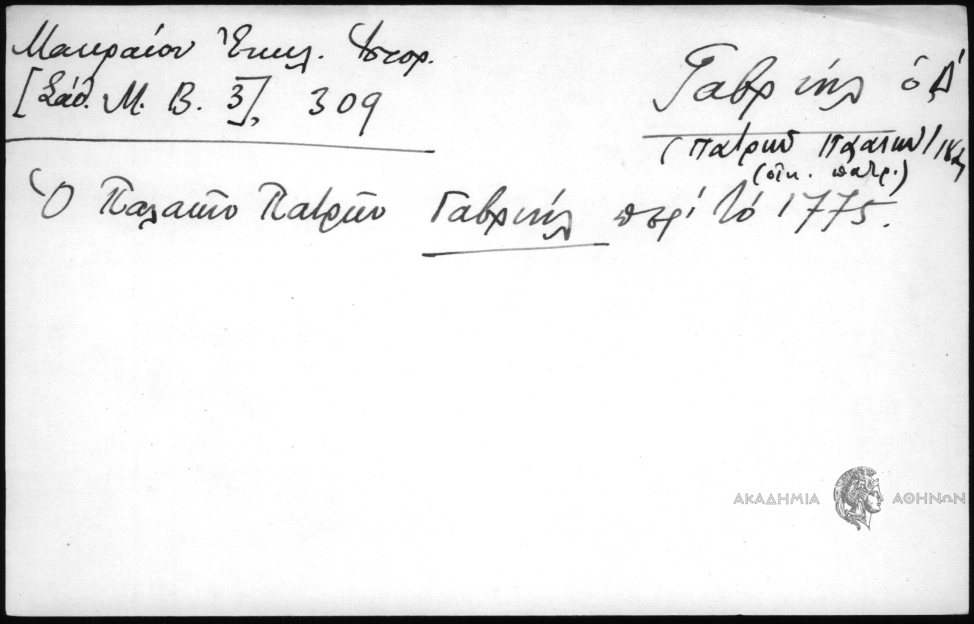 Μακραίου Ἐκκλ. Ἱστορ.
[Σάθ. Μ. Β. 3], 309
Γαβριήλ ὁ Δ΄
(Πατρῶν Παλαιῶν)
(οἰκ. πατρ.)
Ὁ Παλαιῶν Πατρῶν Γαβριήλ περί τό 1775.
ΑΚΑΔΗΜΙΑ ΑΘΗΝΩΝ